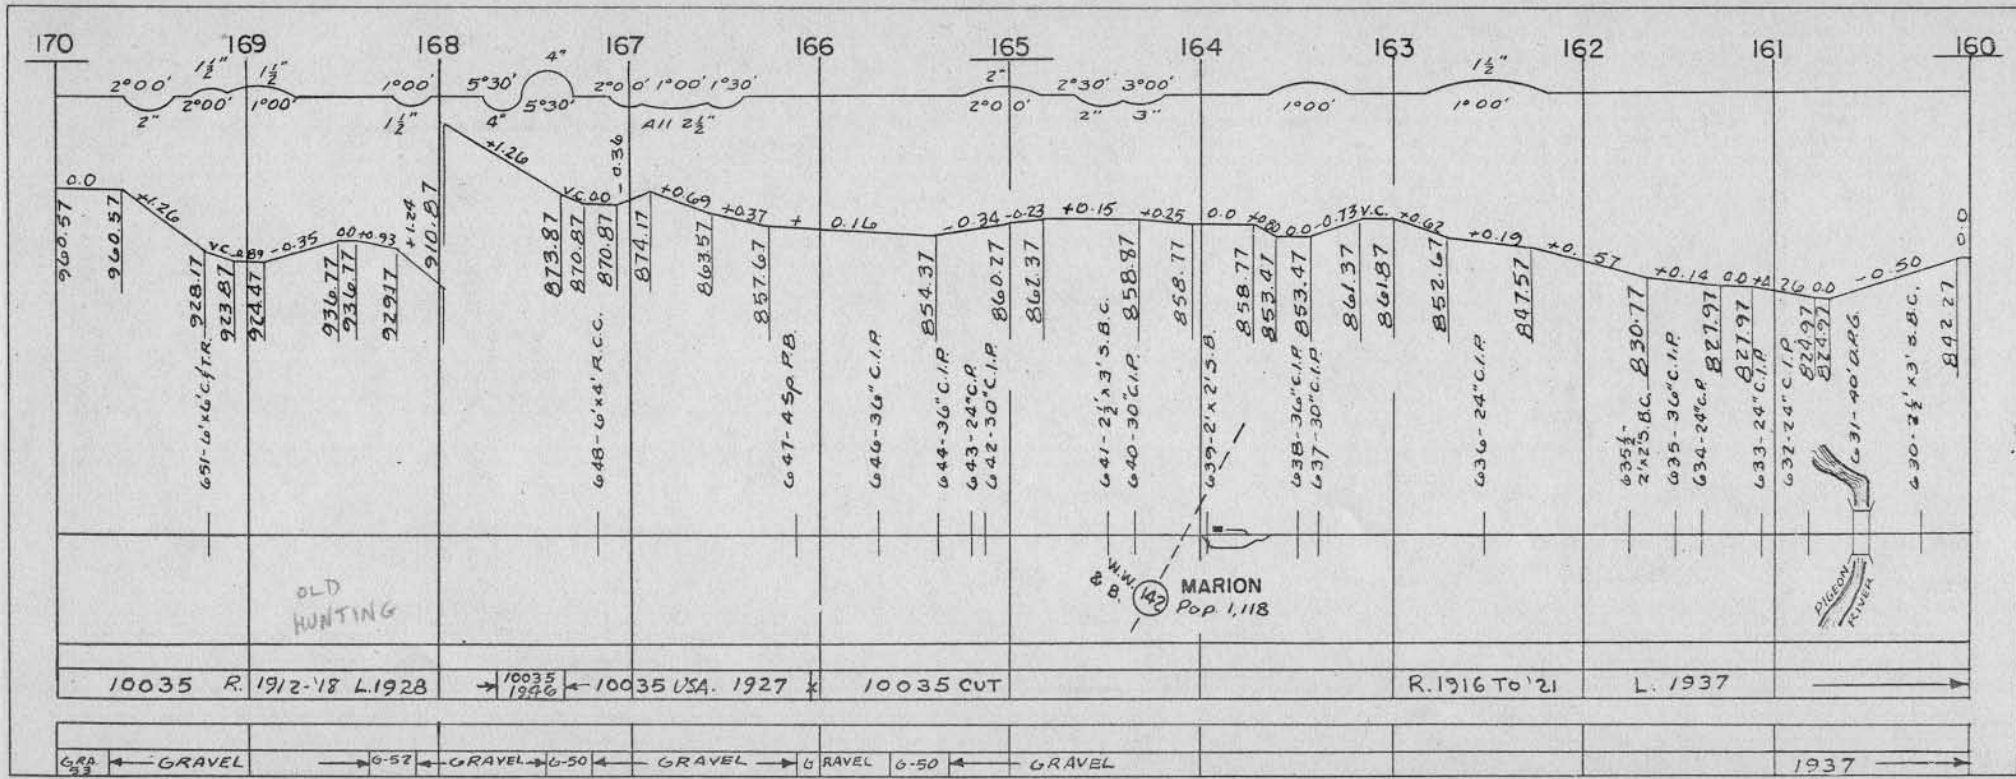 170 169 168 167 166 165 164 163 162 161 160
1½" 1½" 4" 2" 1½"
2°00' 1°00' 5°30' 2°00' 1°00' 1°30' 2°30' 3°00'
2°00' 1°00' 5°30' 2°00' 1°00' 1°00'
2" 1½" 4" All 2½" 2" 3"
0.0 +1.26 V.C. -0.35 0.0 +0.93 +1.24 +1.26 V.C. 0.0 -0.36 +0.69 +0.37 + 0.16 -0.34 -0.23 +0.15 +0.25 0.0 0.0 -0.73 V.C. +0.62 +0.19 +0. 57 +0.14 0.0 +0.26 0.0 -0.50 0.0 0.0
960.57 960.57 928.17 923.87 924.47 936.77 936.77 929.17 910.87 873.87 870.87 870.87 874.17 863.57 857.67 854.37 860.27 862.37 858.87 858.77 858.77 853.47 853.47 861.37 861.87 852.67 847.57 830.77 827.97 827.97 824.97 824.97 842.27
651-6'x6'C.f.T.R.
648-6'x4' R.C.
647-4 Sp. P.B.
646-36" C.I.P.
644-36" C.I.P.
643-24" C.P.
642-30" C.I.P.
641-2½'x3' S.B.C.
640-30" C.I.P.
639-2'x2' S.B.
638-36" C.I.P.
637-30" C.I.P.
636-24" C.I.P.
635½-
2'x2' S.B.C.
635-36" C.I.P.
634-24" C.P.
633-24" C.I.P.
632-24" C.I.P.
631-40' D.P.G.
630-2½'x3' S.B.C.
OLD
HUNTING
W.W.
& B.
142
MARION
Pop. 1,118
PIGEON
RIVER
10035 R. 1912-'18 L. 1928 10035 1946 10035 USA. 1927 x 10035 CUT R. 1916 TO '21 L. 1937
GRA. 53 GRAVEL G-52 GRAVEL G-50 GRAVEL GRAVEL G-50 GRAVEL 1937